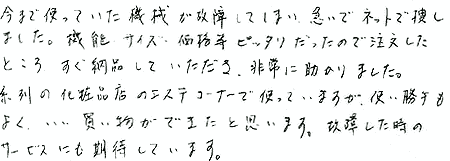 今まで使っていた機械が故障してしまい、急いでネットで捜し
ました。機能、サイズ、価格等ピッタリだったので注文した
ところ、すぐ納品していただき、非常に助かりました。
系列の化粧品店のエステコーナーで使っていますが、使い勝手も
よく、いい買い物ができたと思います。故障した時の
サービスにも期待しています。